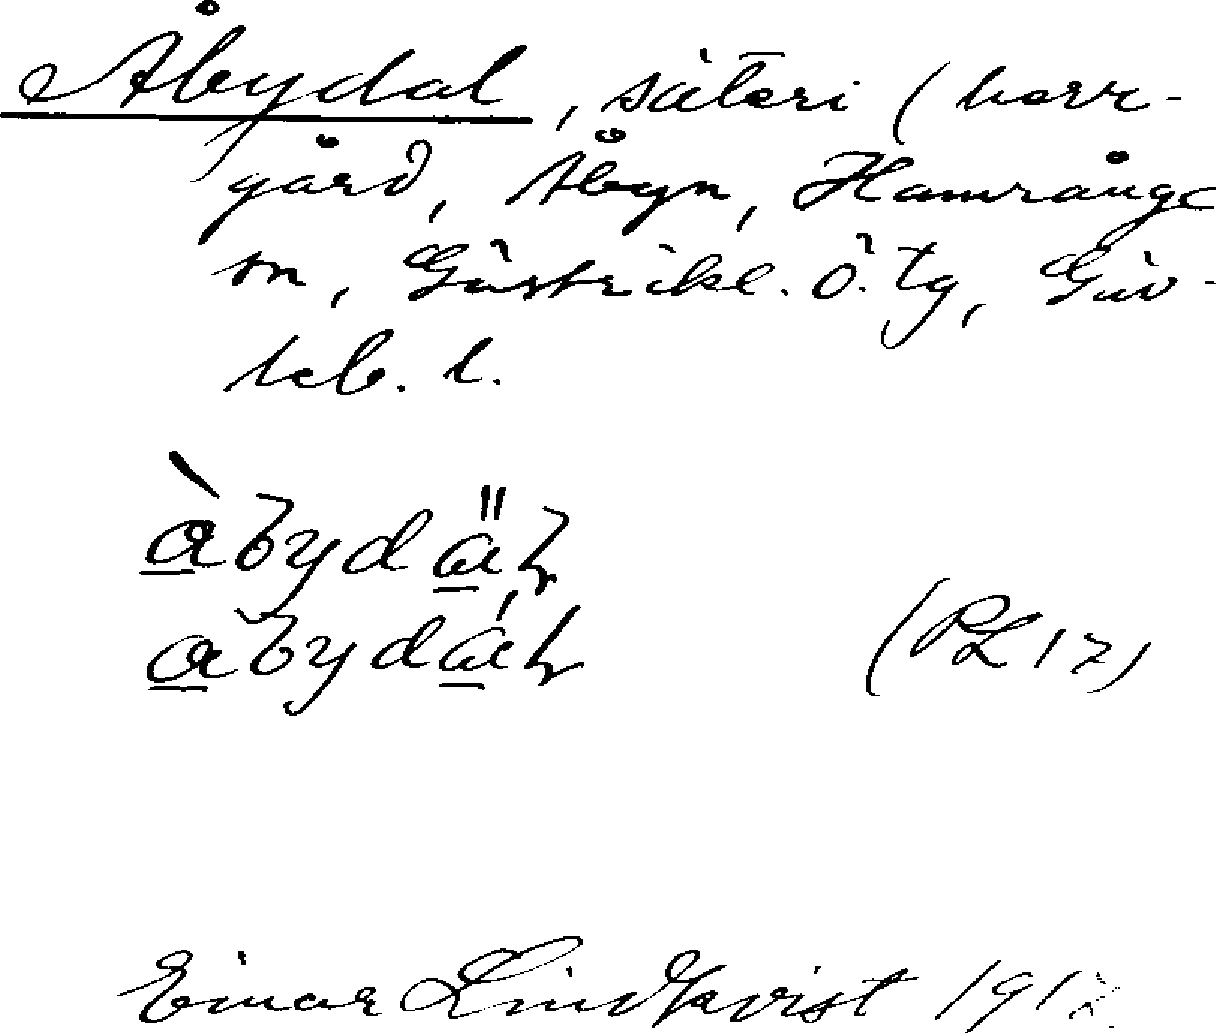 Åbydal, säteri (herr-
gård, Åbyn, Hamrånge
sn, Gästrikl. ö. tg, Gäv-
leb. l.
(PL 17)
Einar Lindkvist 1917